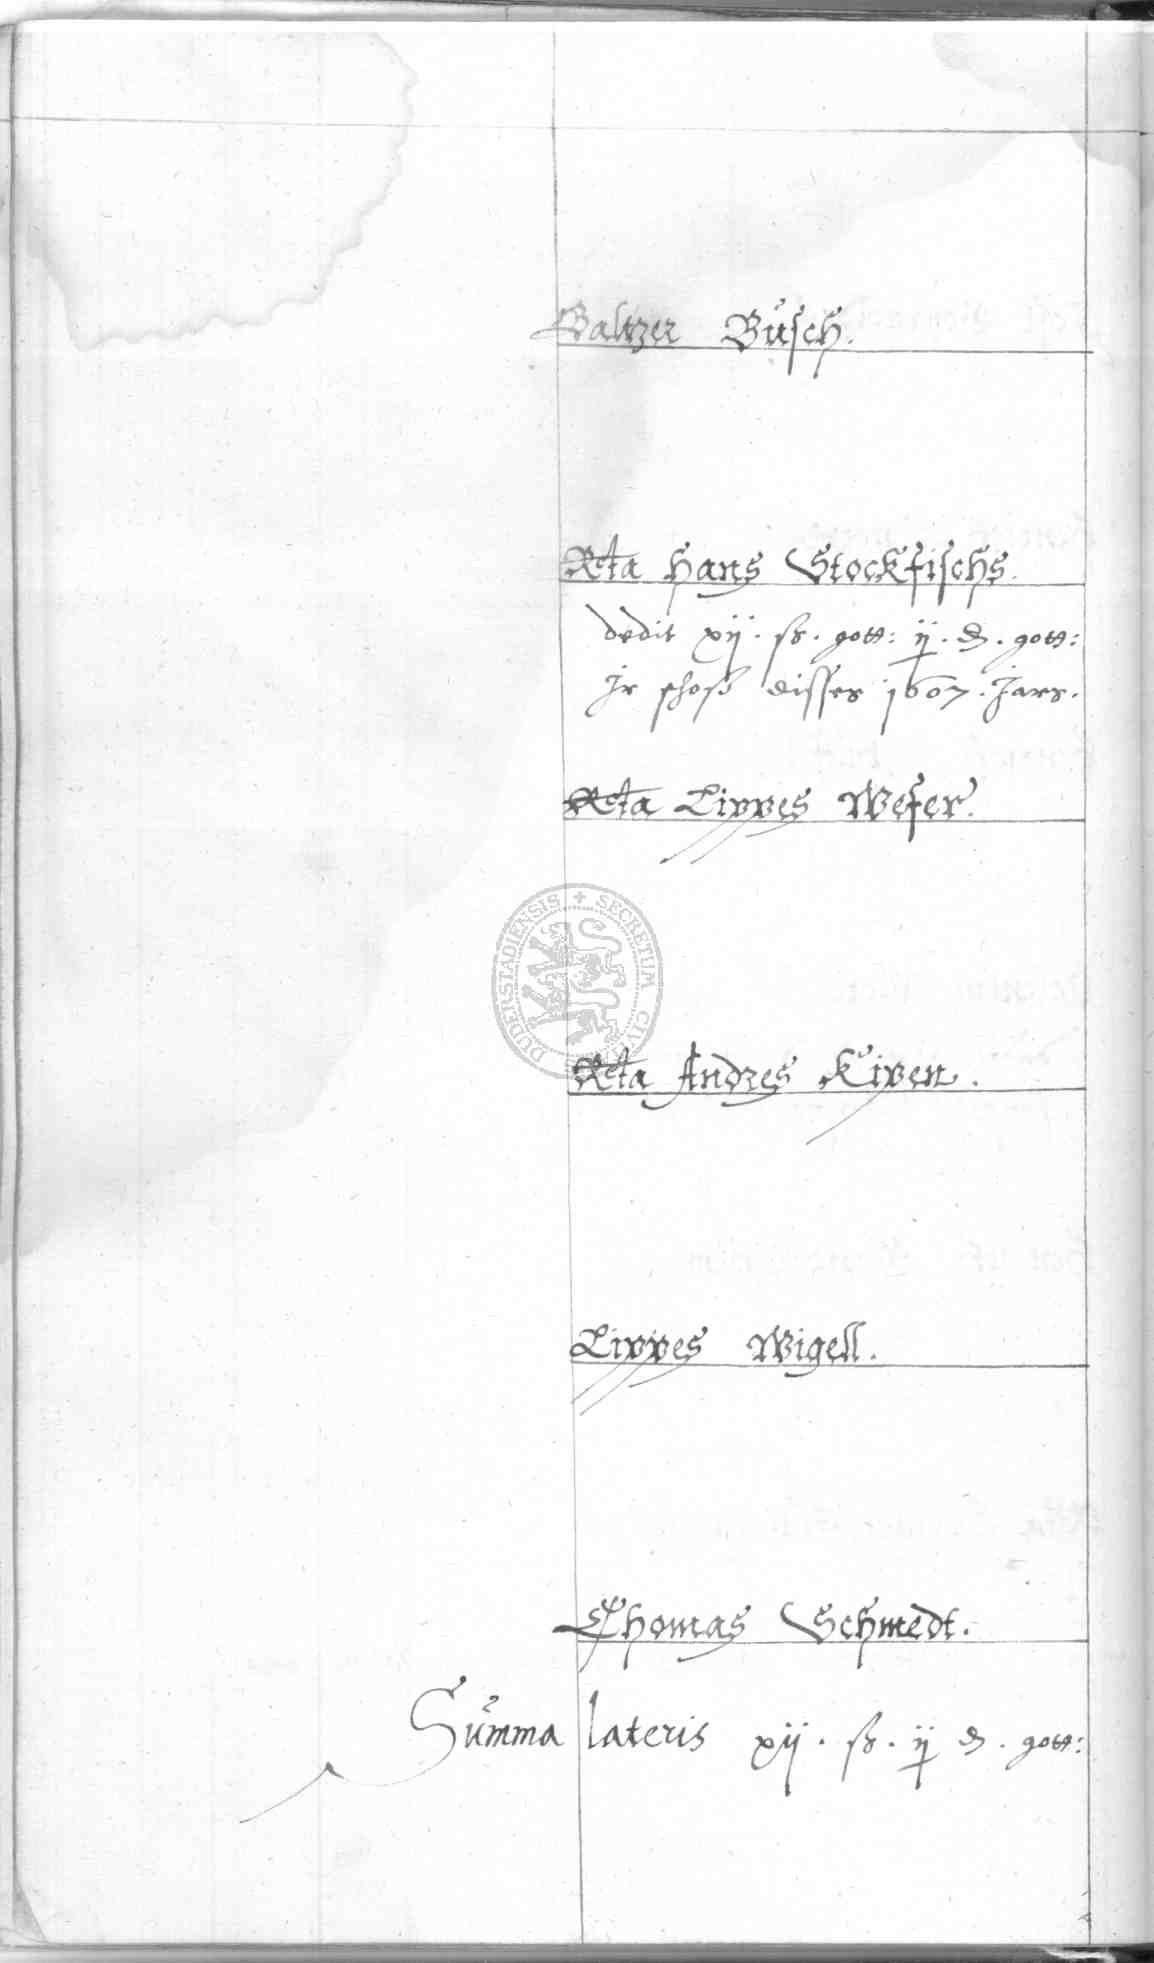 Baltzer Büsch.
Rcta Hans Stockfischs.
dedit xij. ß. gott: ij. d. gott:
Jr schoß disses 1607. Jars.
Rcta Lippes Weser.
DUDERSTADIENSIS + SECRETUM CIVIT
Rcta Andres Kipen.
Lippes Wigell.
Thomas Schmedt.
Sum̃ma lateris xij. ß. ij d. gott: